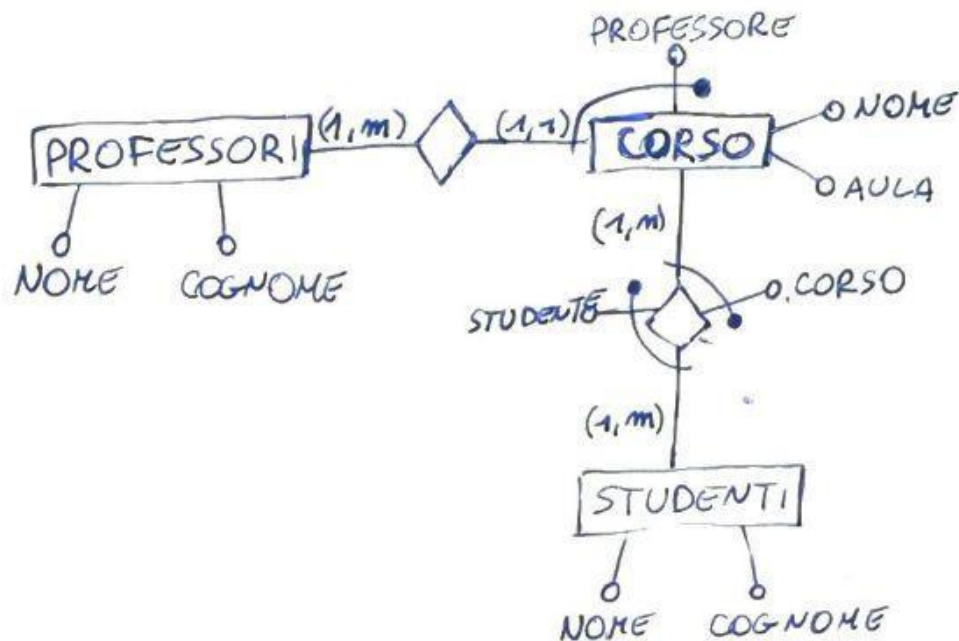 PROFESSORE
PROFESSORI
(1,m)
(1,1)
CORSO
NOME
AULA
NOME
COGNOME
(1,m)
STUDENTE
CORSO
(1,m)
STUDENTI
NOME
COGNOME